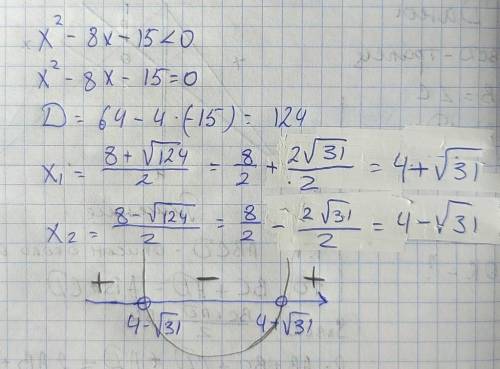 x² - 8x - 15 < 0
x² - 8x - 15 = 0
D = 64 - 4 · (-15) = 124
x₁ = (8 + √124)/2 = 8/2 + 2√31/2 = 4 + √31
x₂ = (8 - √124)/2 = 8/2 - 2√31/2 = 4 - √31
+ - +
4-√31 4+√31